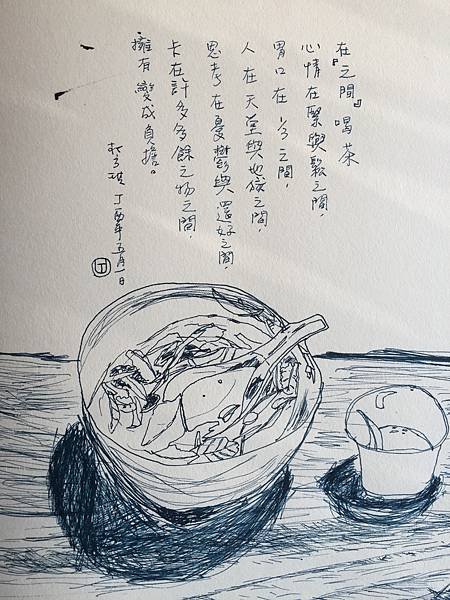 在『之間』喝茶
心情在緊與鬆之間，
胃口在⅓之間，
人在天堂與地獄之間，
思考在憂鬱與還好之間，
卡在許多多餘之物之間，
擁有變成負擔。
丁酉年五月一日
丁